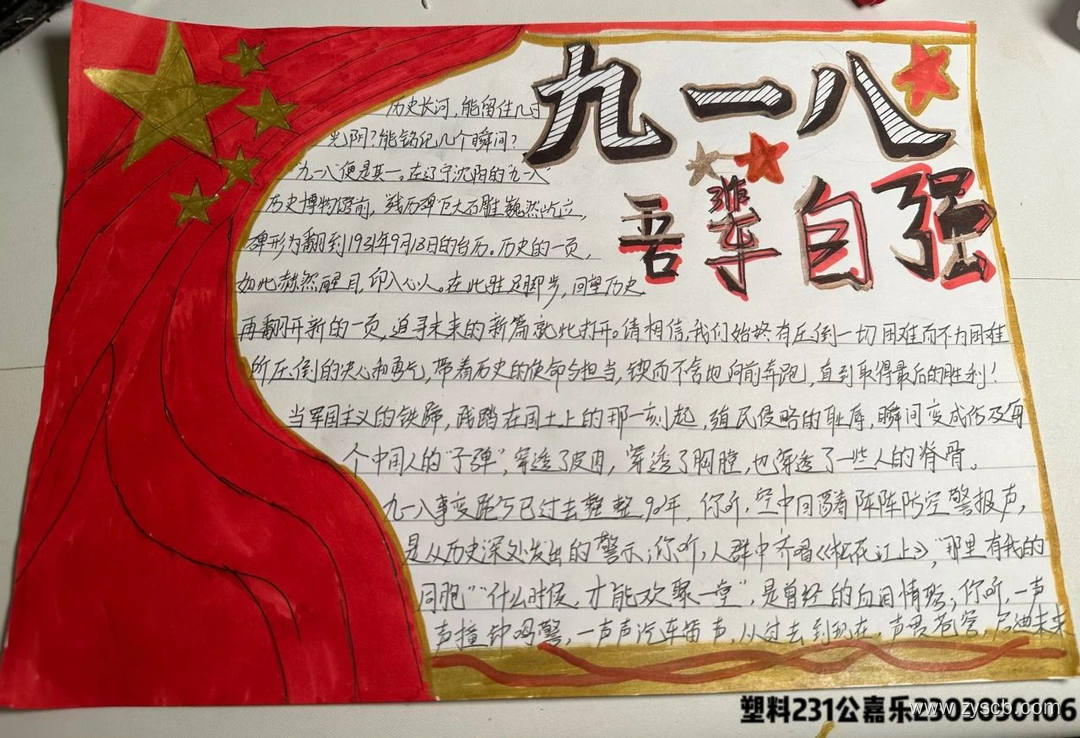 九一八
吾辈自强
历史长河，能留住几寸
光阴？能铭纪几个瞬间？
九一八便是其一。在辽宁沈阳的"九一八"
历史博物馆前，残历碑巨大石雕巍然屹立，
碑形为翻到1931年9月18日的台历。历史的一页，
如此赫然醒目，印入心人。在此驻足脚步，回望历史
再翻开新的一页，追寻未来的新篇就此打开。请相信，我们始终有压倒一切困难而不为困难
所压倒的决心和勇气，带着历史的使命与担当，锲而不舍地向前奔跑，直到取得最后的胜利！
当军国主义的铁蹄，践踏在国土上的那一刻起，殖民侵略的耻辱，瞬间变成伤及每
个中国人的"子弹"，穿透了皮肉，穿透了胸膛，也穿透了一些人的脊骨。
九一八事变距今已过去整整92年，你听，空中回荡着阵阵防空警报声，
是从历史深处发出的警示；你听，人群中齐唱《松花江上》，"那里有我的
同胞""什么时候，才能欢聚一堂"，是曾经的血泪情殇；你听，一声
声撞钟鸣警，一声声汽车笛声，从过去到现在，声贯苍穹，
塑料231公嘉乐2303090106
www.zyscb.com